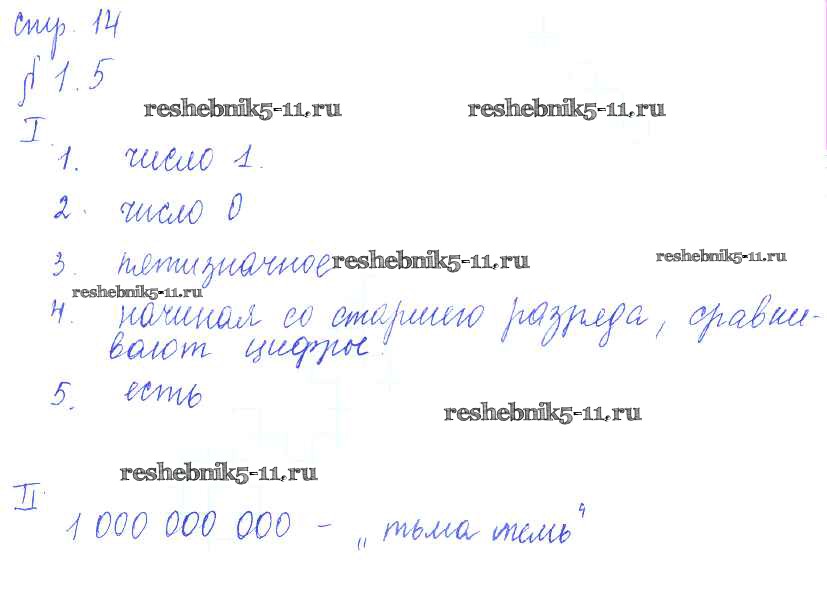 стр. 14
§ 1.5
reshebnik5-11.ru reshebnik5-11.ru
I.
1. число 1.
2. число 0
3. пятизначное reshebnik5-11.ru reshebnik5-11.ru
reshebnik5-11.ru
4. начиная со старшего разряда, сравни-
вают цифры.
5. есть
reshebnik5-11.ru
reshebnik5-11.ru
II.
1 000 000 000 – „тьма темь“